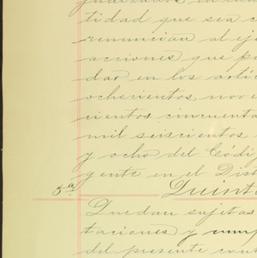 tidad que sea c
renuncian al ej
acciones que pu
dar en los artí
ochocientos nove
cientos cincuenta
mil seiscientos
y ocho del Códi
gente en el Dist
5ª Quinta
Quedan sujetas
taciones y
del presente cont